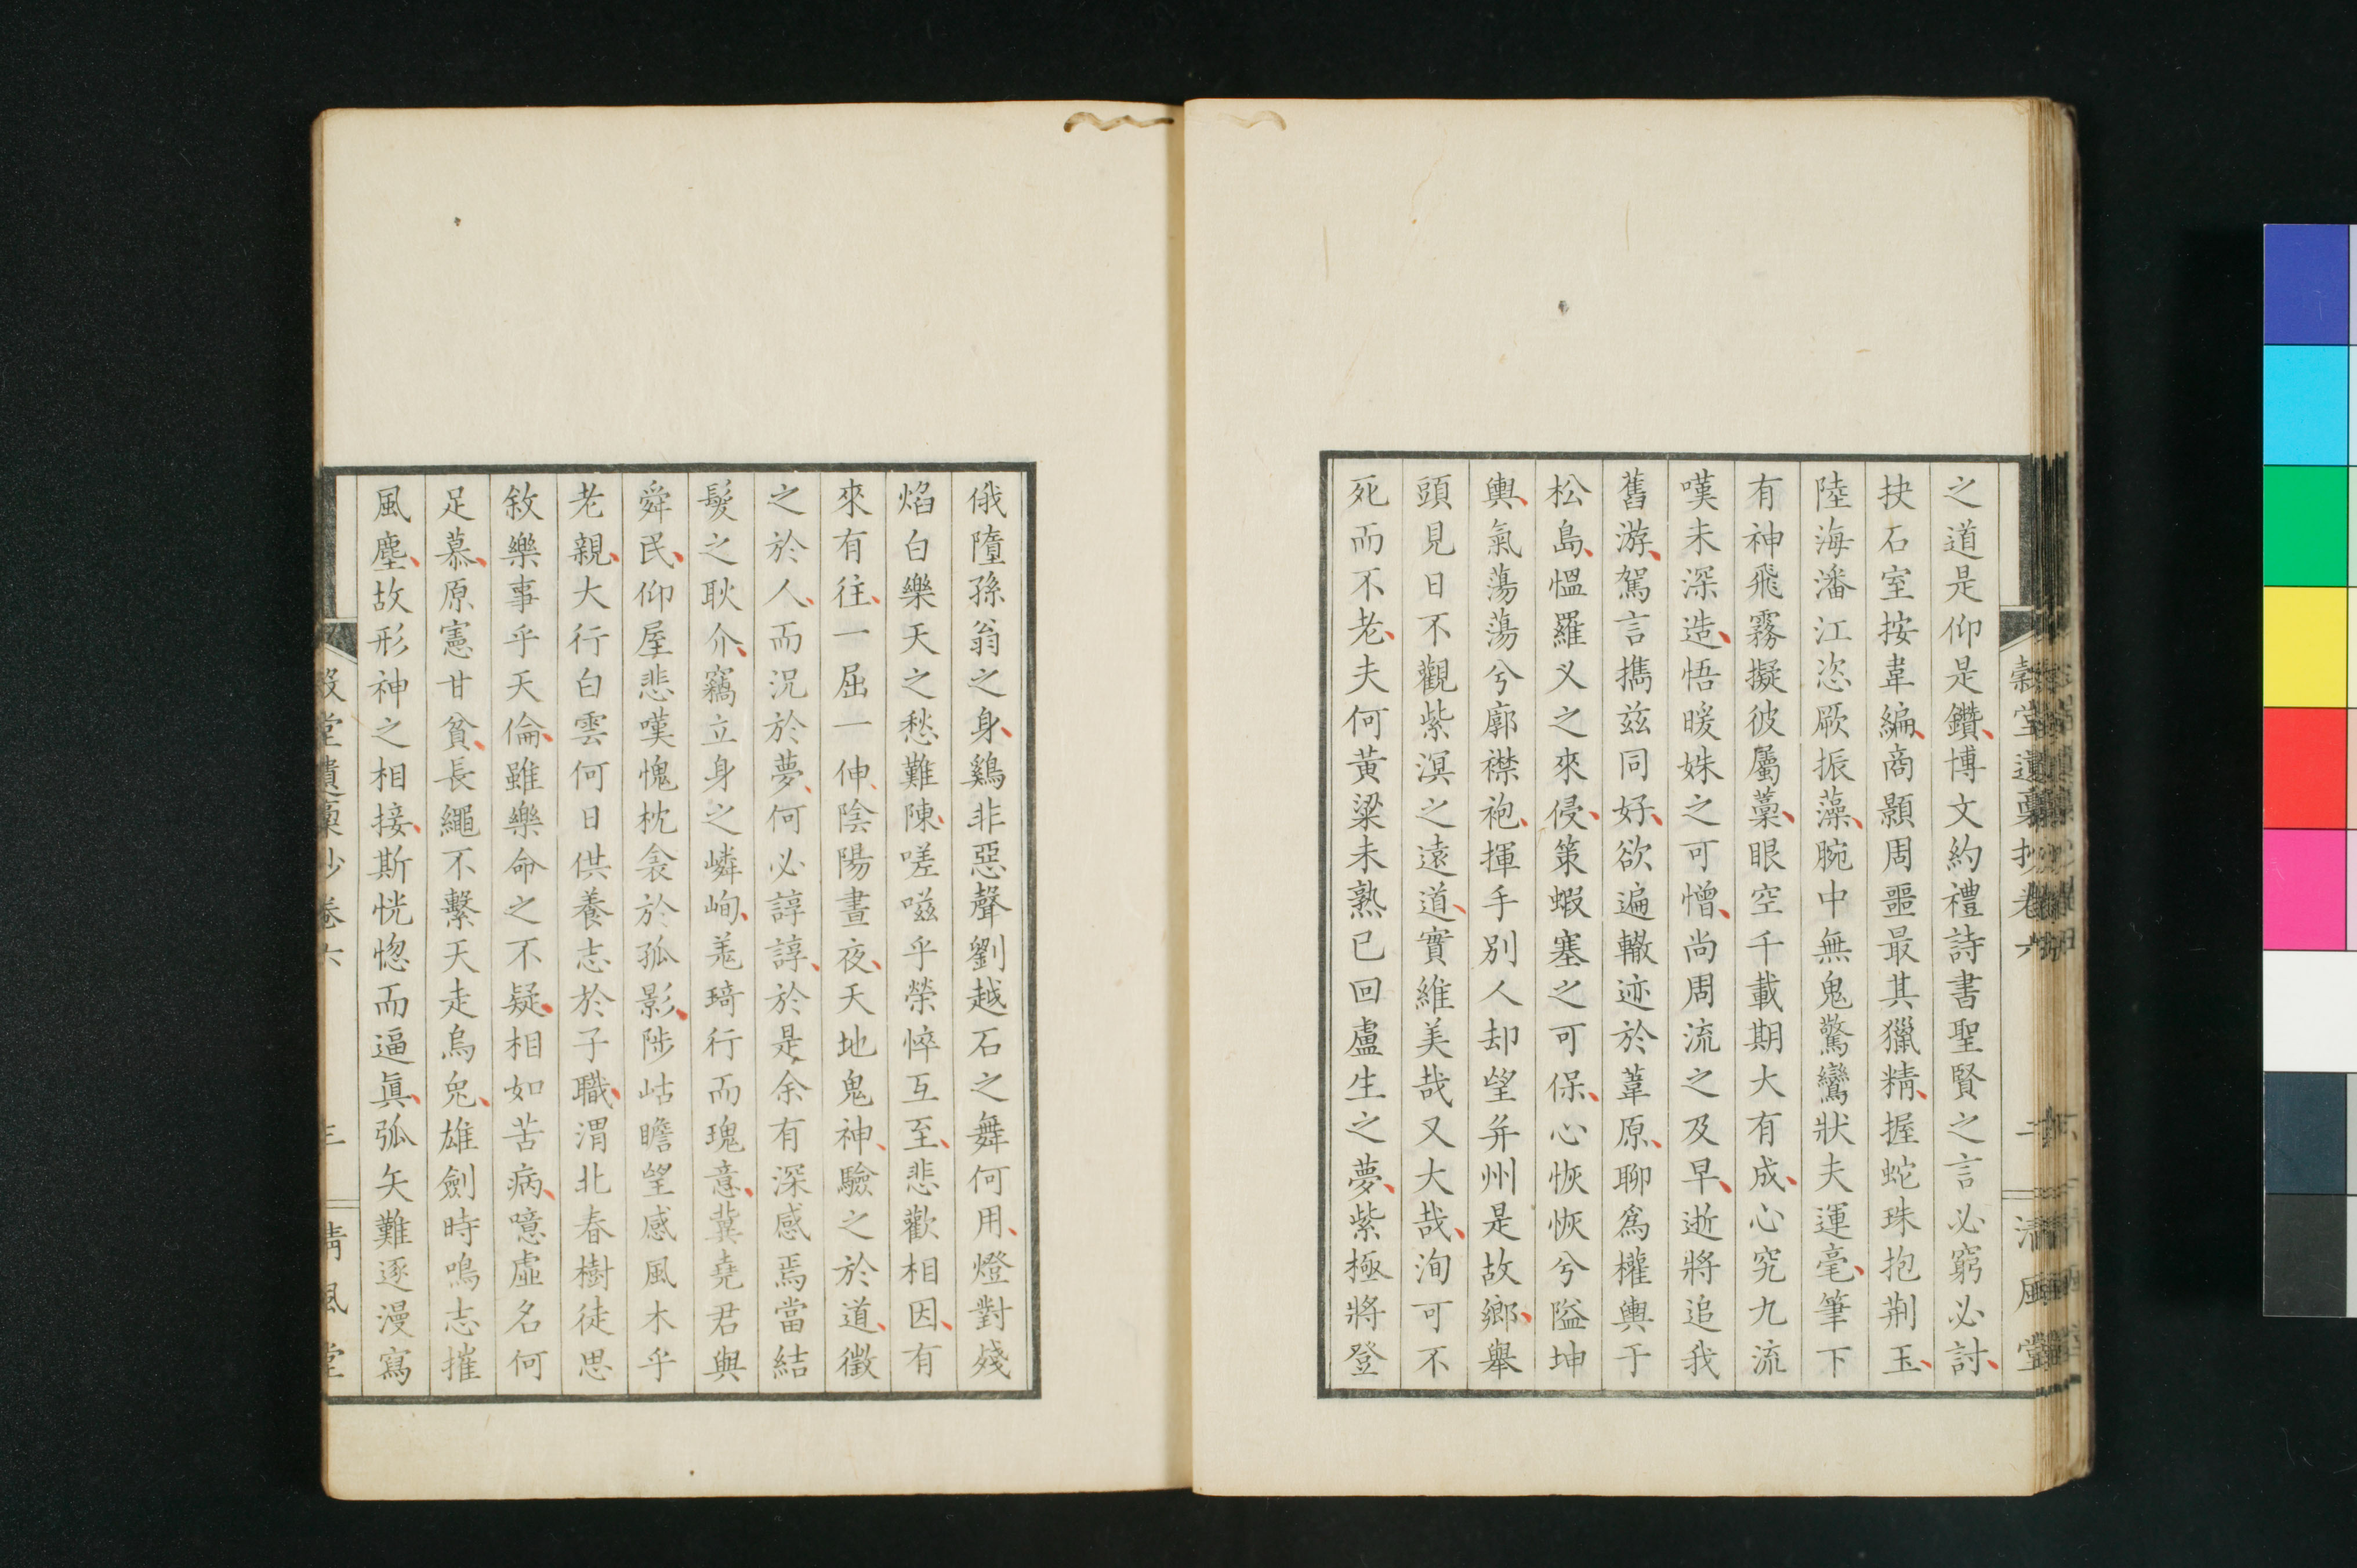 之道是仰是鑽博文約禮詩書聖賢之言必窮必討
抉石室按韋編商顥周噩最其獵精握蛇珠抱荆玉
陸海潘江恣厥振藻腕中無鬼驚鸞狀夫運毫筆下
有神飛霧擬彼屬藁眼空千載期大有成心究九流
嘆未深造悟暖姝之可憎尚周流之及早逝將追我
舊游駕言攜兹同好欲遍轍迹於葦原聊爲權輿于
松島慍羅乂之來侵策蝦塞之可保心恢恢兮隘坤
輿氣蕩蕩兮廓襟袍揮手別人却望并州是故鄉舉
頭見日不觀紫溟之遠道實維美哉又大哉洵可不
死而不老夫何黃粱未熟已回盧生之夢紫極將登
俄墮孫翁之身鷄非惡聲劉越石之舞何用燈對殘
焰白樂天之愁難陳嗟嗞乎榮悴互至悲歡相因有
來有往一屈一伸陰陽晝夜天地鬼神驗之於道徵
之於人而況於夢何必諄諄於是余有深感焉當結
髮之耿介竊立身之嶙峋羌琦行而瑰意冀堯君與
舜民仰屋悲嘆愧枕衾於孤影陟岵瞻望感風木乎
老親大行白雲何日供養志於子職渭北春樹徒思
敘樂事乎天倫雖樂命之不疑相如苦病噫虛名何
足慕原憲甘貧長繩不繫天走烏兔雄劍時鳴志摧
風塵故形神之相接斯恍惚而逼眞弧矢難逐漫寫
穀堂遺稾抄卷六
三
清風堂